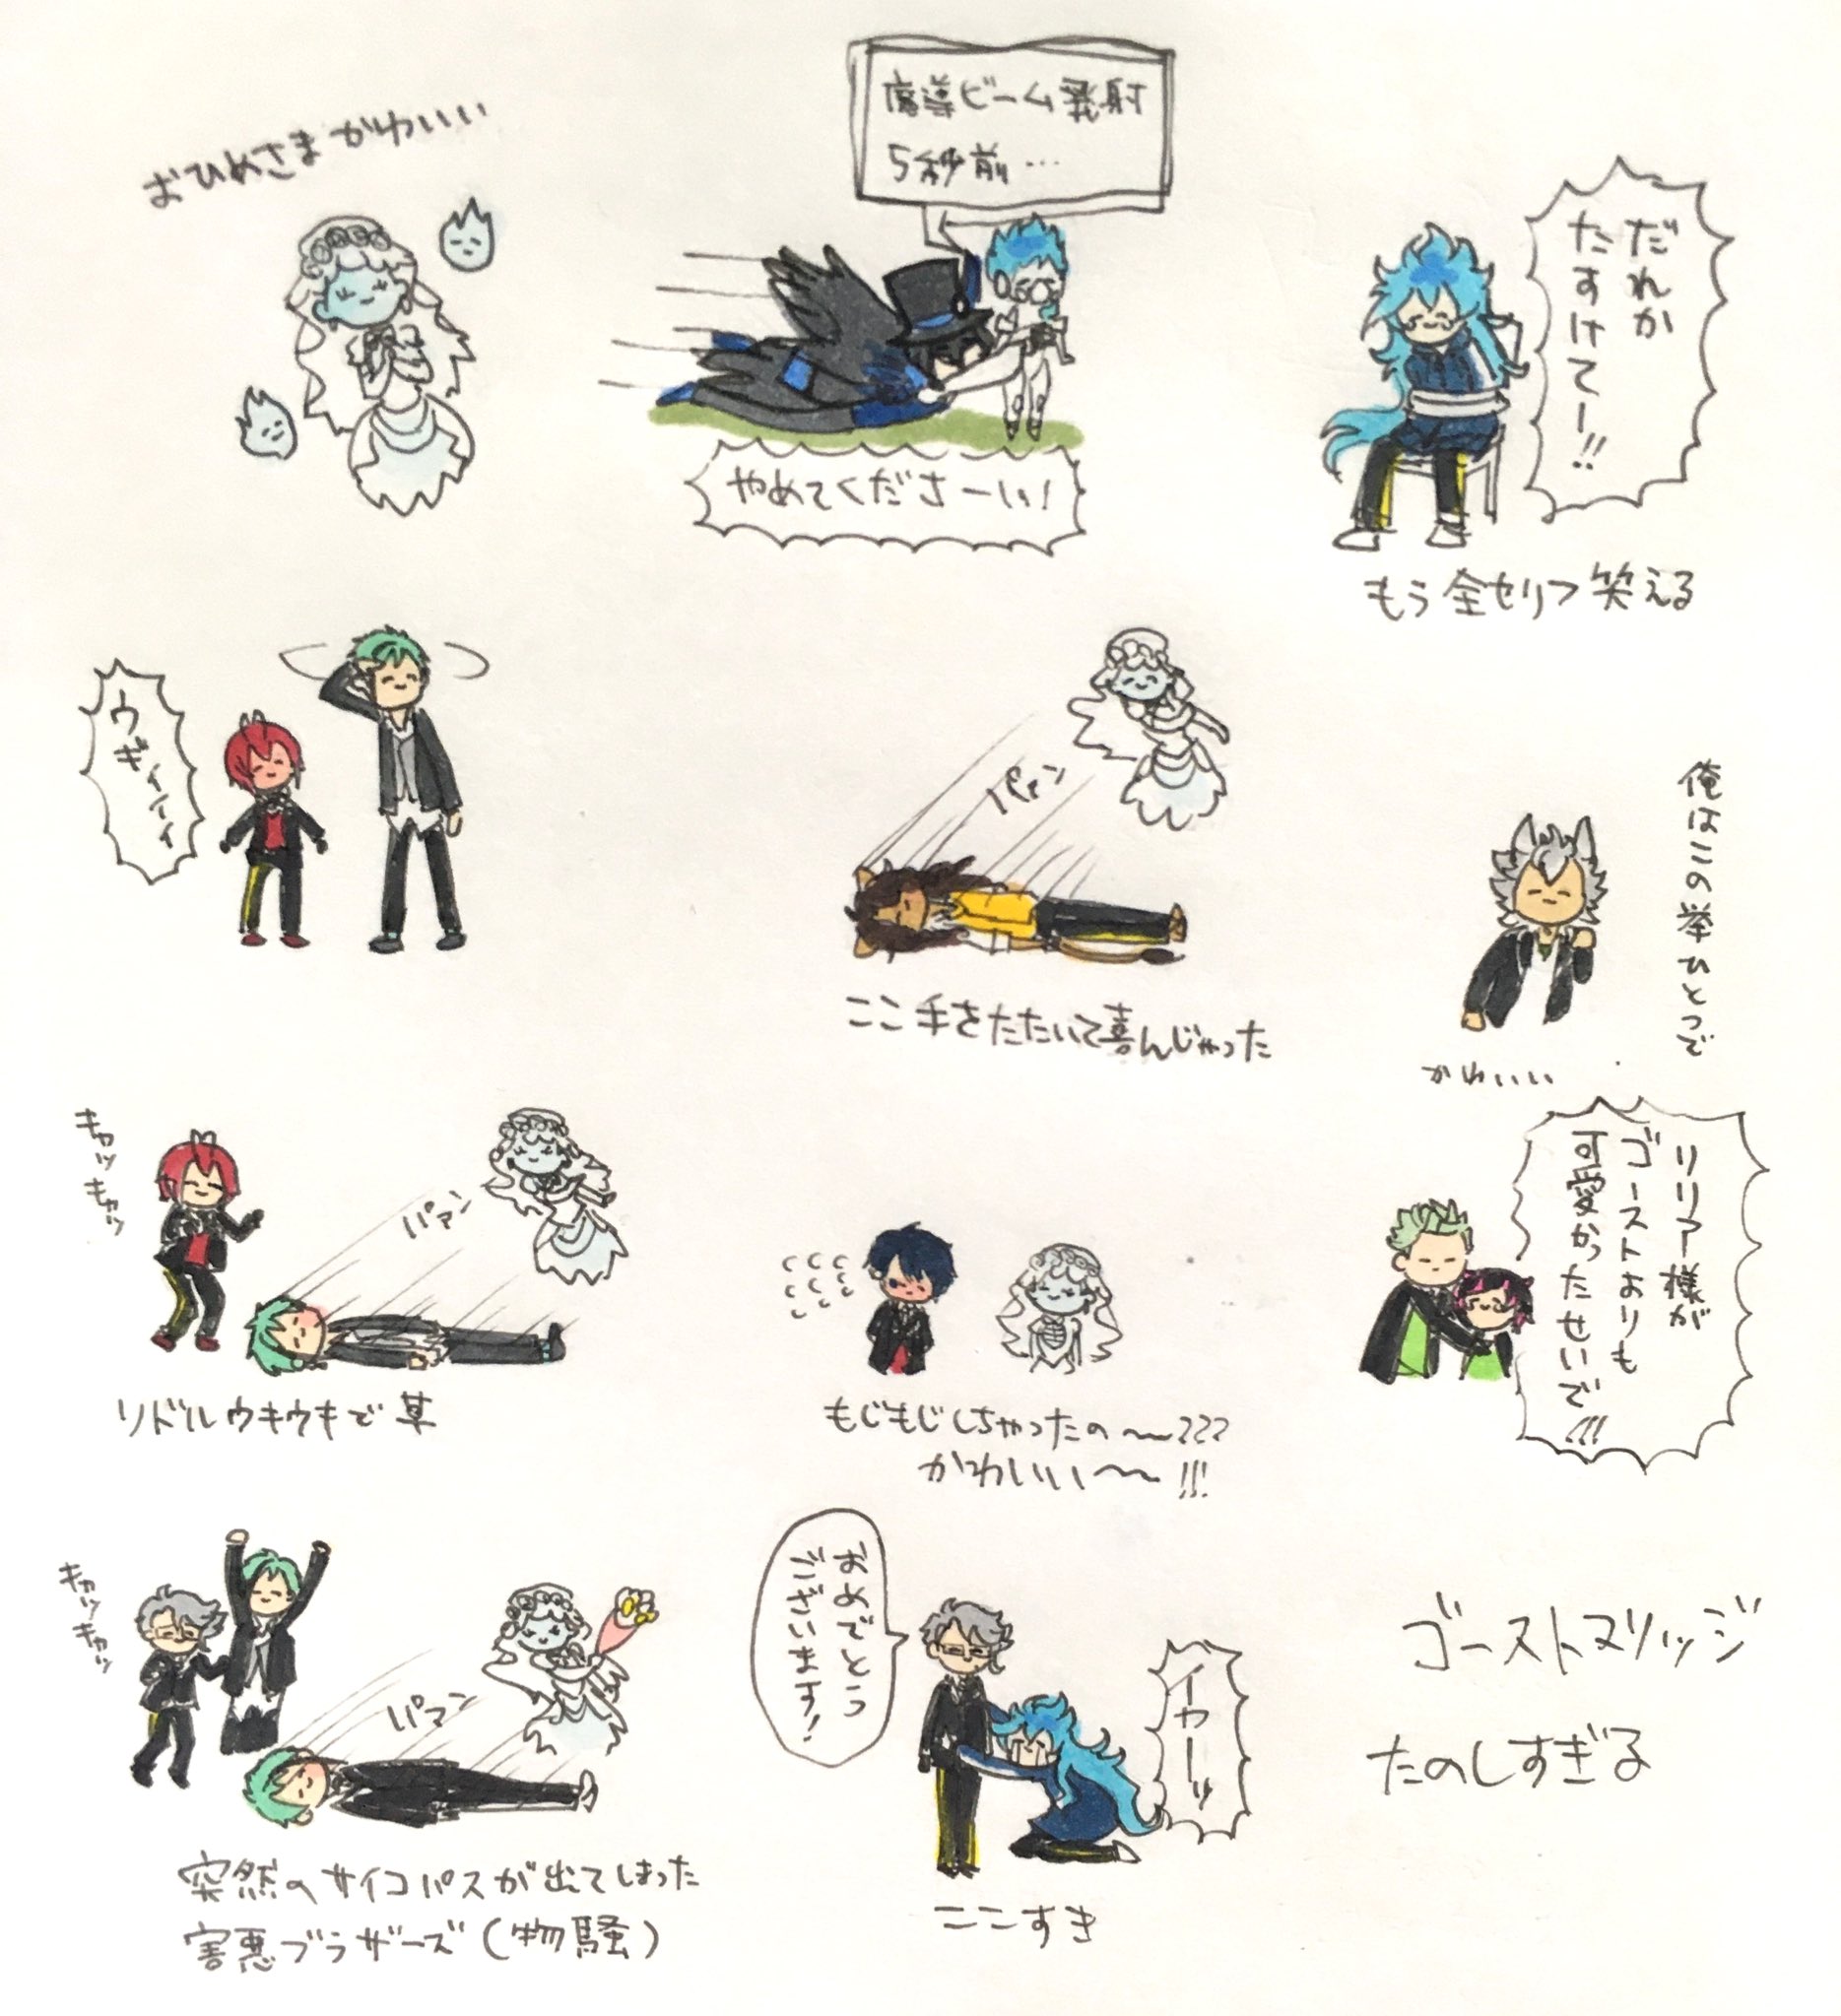 おひめさまかわいい
魔導ビーム発射
5秒前…
やめてくださーい!
だれか
たすけてー!!
もう全セリフ笑える
ウギィィィ
パァン
ここ手をたたいて喜んじゃった
俺はこの拳ひとつで
かわいい
キャッキャッ
パァン
リドルウキウキで草
もじもじしちゃったの〜〜???
かわいい〜〜!!!
リリア様が
ゴーストよりも
可愛かったせいで!!!
キャッキャッ
パァン
突然のサイコパスが出てしまった
害悪ブラザーズ(物騒)
おめでとう
ございます!
イヤーッ
ここすき
ゴーストマリッジ
たのしすぎる